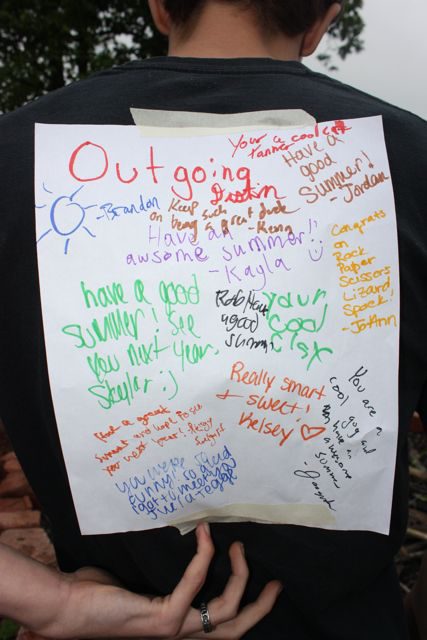 Your a cool cat
tanner
Outgoing
Justin
Have a
good
summer!
- Jordan
- Brandon
Keep such
on being a great dude
- Kenn
Have an
awsome summer!!
- Kayla :)
Congrats
on
Rock
Paper
Scissors
Lizard
Spock!
- JoAnn
have a good
summer! See
you next year.
Skyler :)
Rob Have
a good
summer
your
cool
Alex
Really smart
+ sweet!
Kelsey ♡
Have a great
summer and hope to see
you next year!
You are a
cool guy and
have a
awesome
summer
you were
funny! so glad
I got to meet you